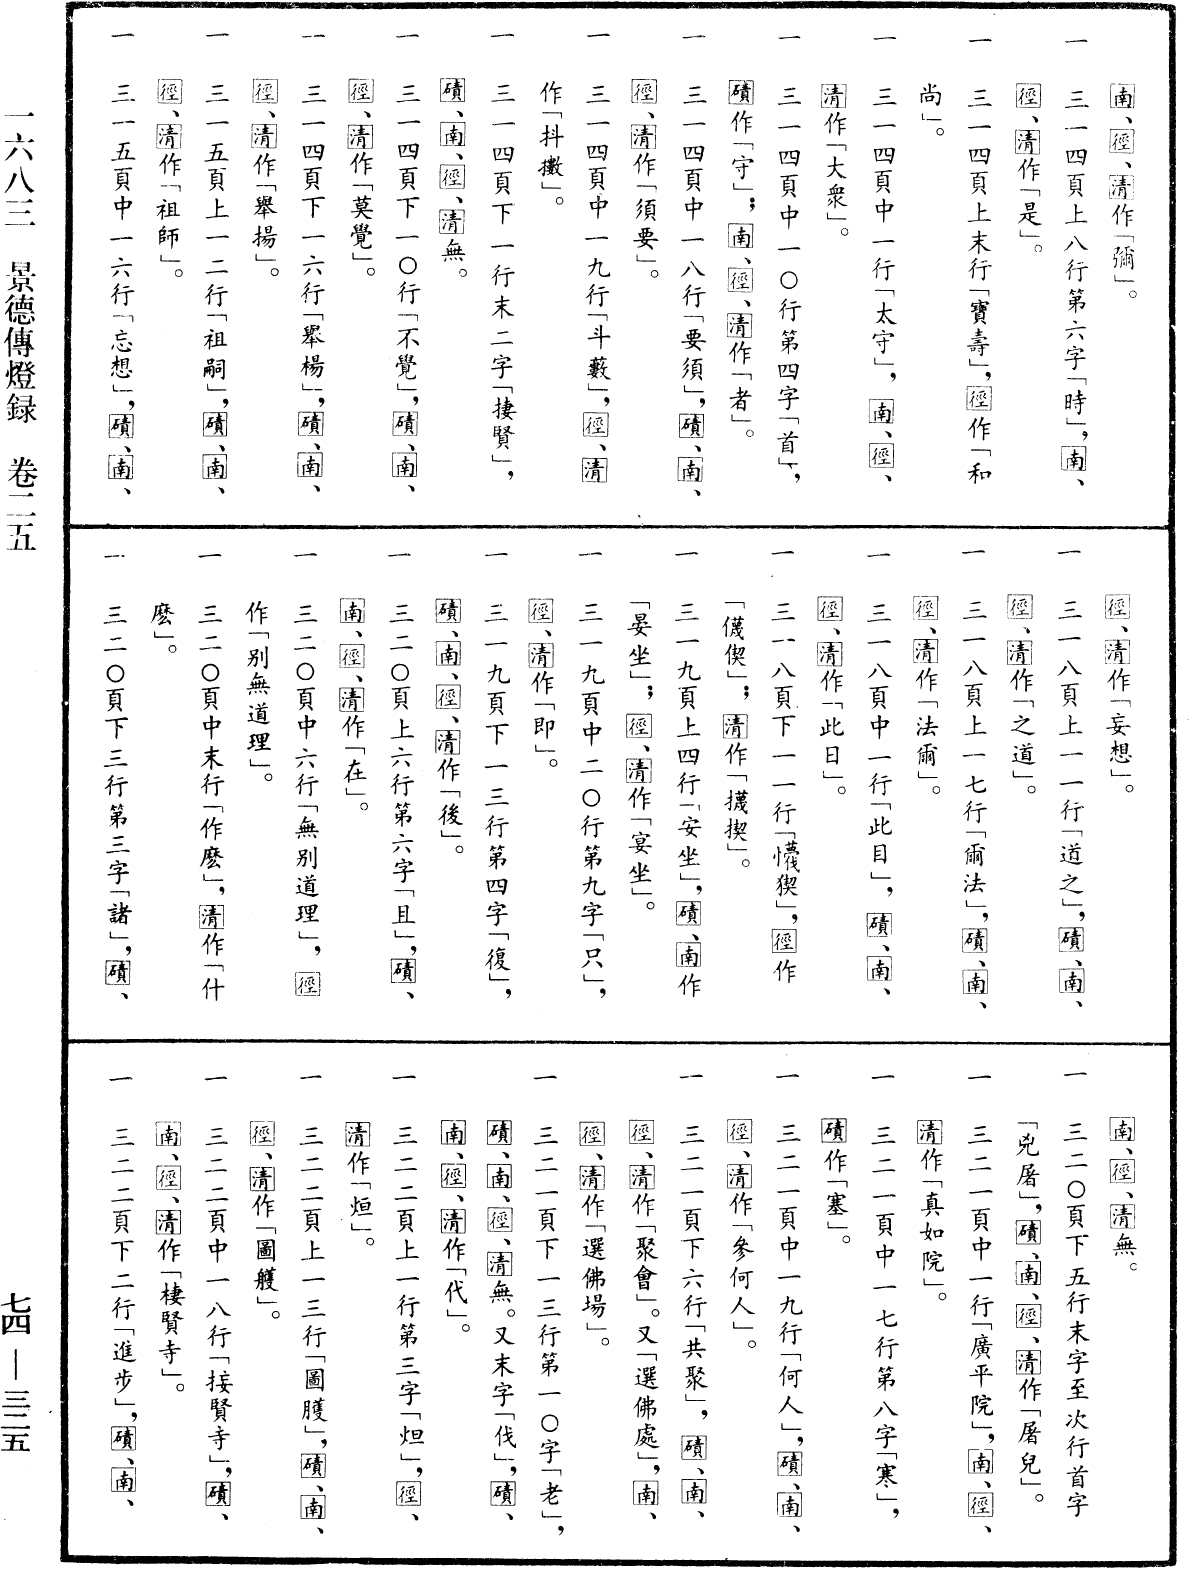 南、徑、清作「彌」。
一 三一四頁上八行第六字「時」，南、
徑、清作「是」。
一 三一四頁上末行「寶壽」，徑作「和
尚」。
一 三一四頁中一行「太守」，南、徑、
清作「大衆」。
一 三一四頁中一〇行第四字「首」，
磧作「守」；南、徑、清作「者」。
一 三一四頁中一八行「要須」，磧、南、
徑、清作「須要」。
一 三一四頁中一九行「斗藪」，徑、清
作「抖擻」。
一 三一四頁下一行末二字「捿賢」，
磧、南、徑、清無。
一 三一四頁下一〇行「不覺」，磧、南、
徑、清作「莫覺」。
一 三一四頁下一六行「舉楊」，磧、南、
徑、清作「舉揚」。
一 三一五頁上一二行「祖嗣」，磧、南、
徑、清作「祖師」。
一 三一五頁中一六行「忘想」，磧、南、
徑、清作「妄想」。
一 三一八頁上一一行「道之」，磧、南、
徑、清作「之道」。
一 三一八頁上一七行「爾法」，磧、南、
徑、清作「法爾」。
一 三一八頁中一行「此目」，磧、南、
徑、清作「此日」。
一 三一八頁下一一行「㦬猰」，徑作
「儀偰」；清作「㩢揳」。
一 三一九頁上四行「安坐」，磧、南作
「晏坐」；徑、清作「宴坐」。
一 三一九頁中二〇行第九字「只」，
徑、清作「即」。
一 三一九頁下一三行第四字「復」，
磧、南、徑、清作「後」。
一 三二〇頁上六行第六字「且」，磧、
南、徑、清作「在」。
一 三二〇頁中六行「無別道理」，徑
作「別無道理」。
一 三二〇頁中末行「作麽」，清作「什
麽」。
一 三二〇頁下三行第三字「諸」，磧、
南、徑、清無。
一 三二〇頁下五行末字至次行首字
「兇屠」，磧、南、徑、清作「屠兒」。
一 三二一頁中一行「廣平院」，南、徑、
清作「真如院」。
一 三二一頁中一七行第八字「寒」，
磧作「塞」。
一 三二一頁中一九行「何人」，磧、南、
徑、清作「參何人」。
一 三二一頁下六行「共聚」，磧、南、
徑、清作「聚會」。又「選佛處」，南、
徑、清作「選佛場」。
一 三二一頁下一三行第一〇字「老」，
磧、南、徑、清無。又末字「伐」，磧、
南、徑、清作「代」。
一 三二二頁上一行第三字「炟」，徑、
清作「烜」。
一 三二二頁上一三行「圖臒」，磧、南、
徑、清作「圖艧」。
一 三二二頁中一八行「接賢寺」，磧、
南、徑、清作「棲賢寺」。
一 三二二頁下二行「進步」，磧、南、
一六八三 景德傳燈録 卷二五
七四—三二五